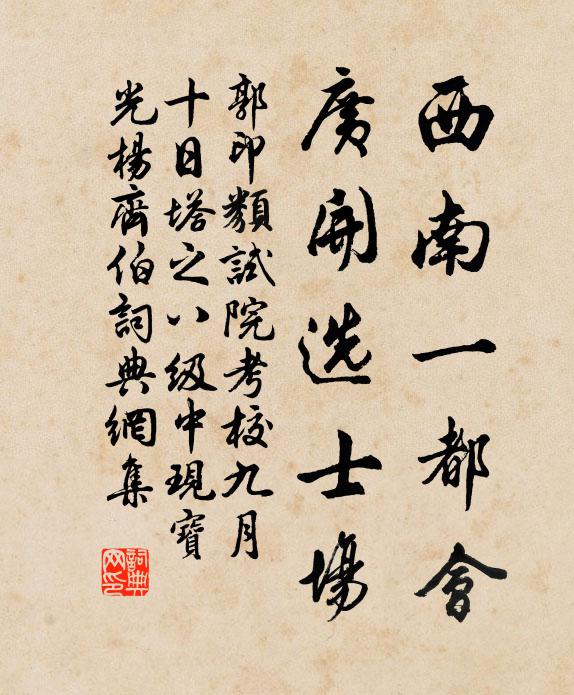 西南一都會
廣開選士場
郭印類試院考校九月
十日塔之八級中現寶
光楊齊伯詞典網集
詞典网印